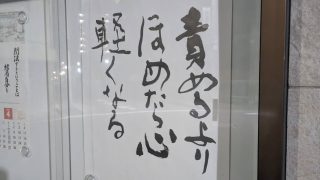 責めるより
ほめたら心
軽くなる
4